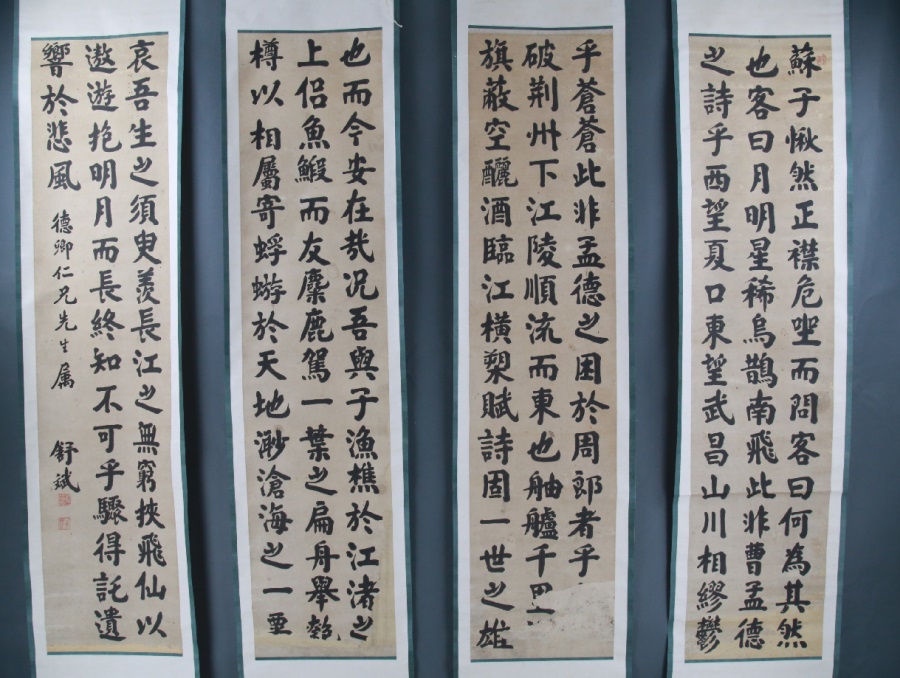 蘇子愀然正襟危坐而問客曰何為其然
也客曰月明星稀烏鵲南飛此非曹孟德
之詩乎西望夏口東望武昌山川相繆鬱
乎蒼蒼此非孟德之困於周郎者乎
破荊州下江陵順流而東也舳艫千
旗蔽空釃酒臨江橫槊賦詩固一世之雄
也而今安在哉况吾與子漁樵於江渚之
上侶魚鰕而友麋鹿駕一葉之扁舟舉匏
樽以相屬寄蜉蝣於天地渺滄海之一
哀吾生之須臾羨長江之無窮挾飛仙以
遨遊抱明月而長終知不可乎驟得託遺
響於悲風
德卿仁兄先生属
舒斌